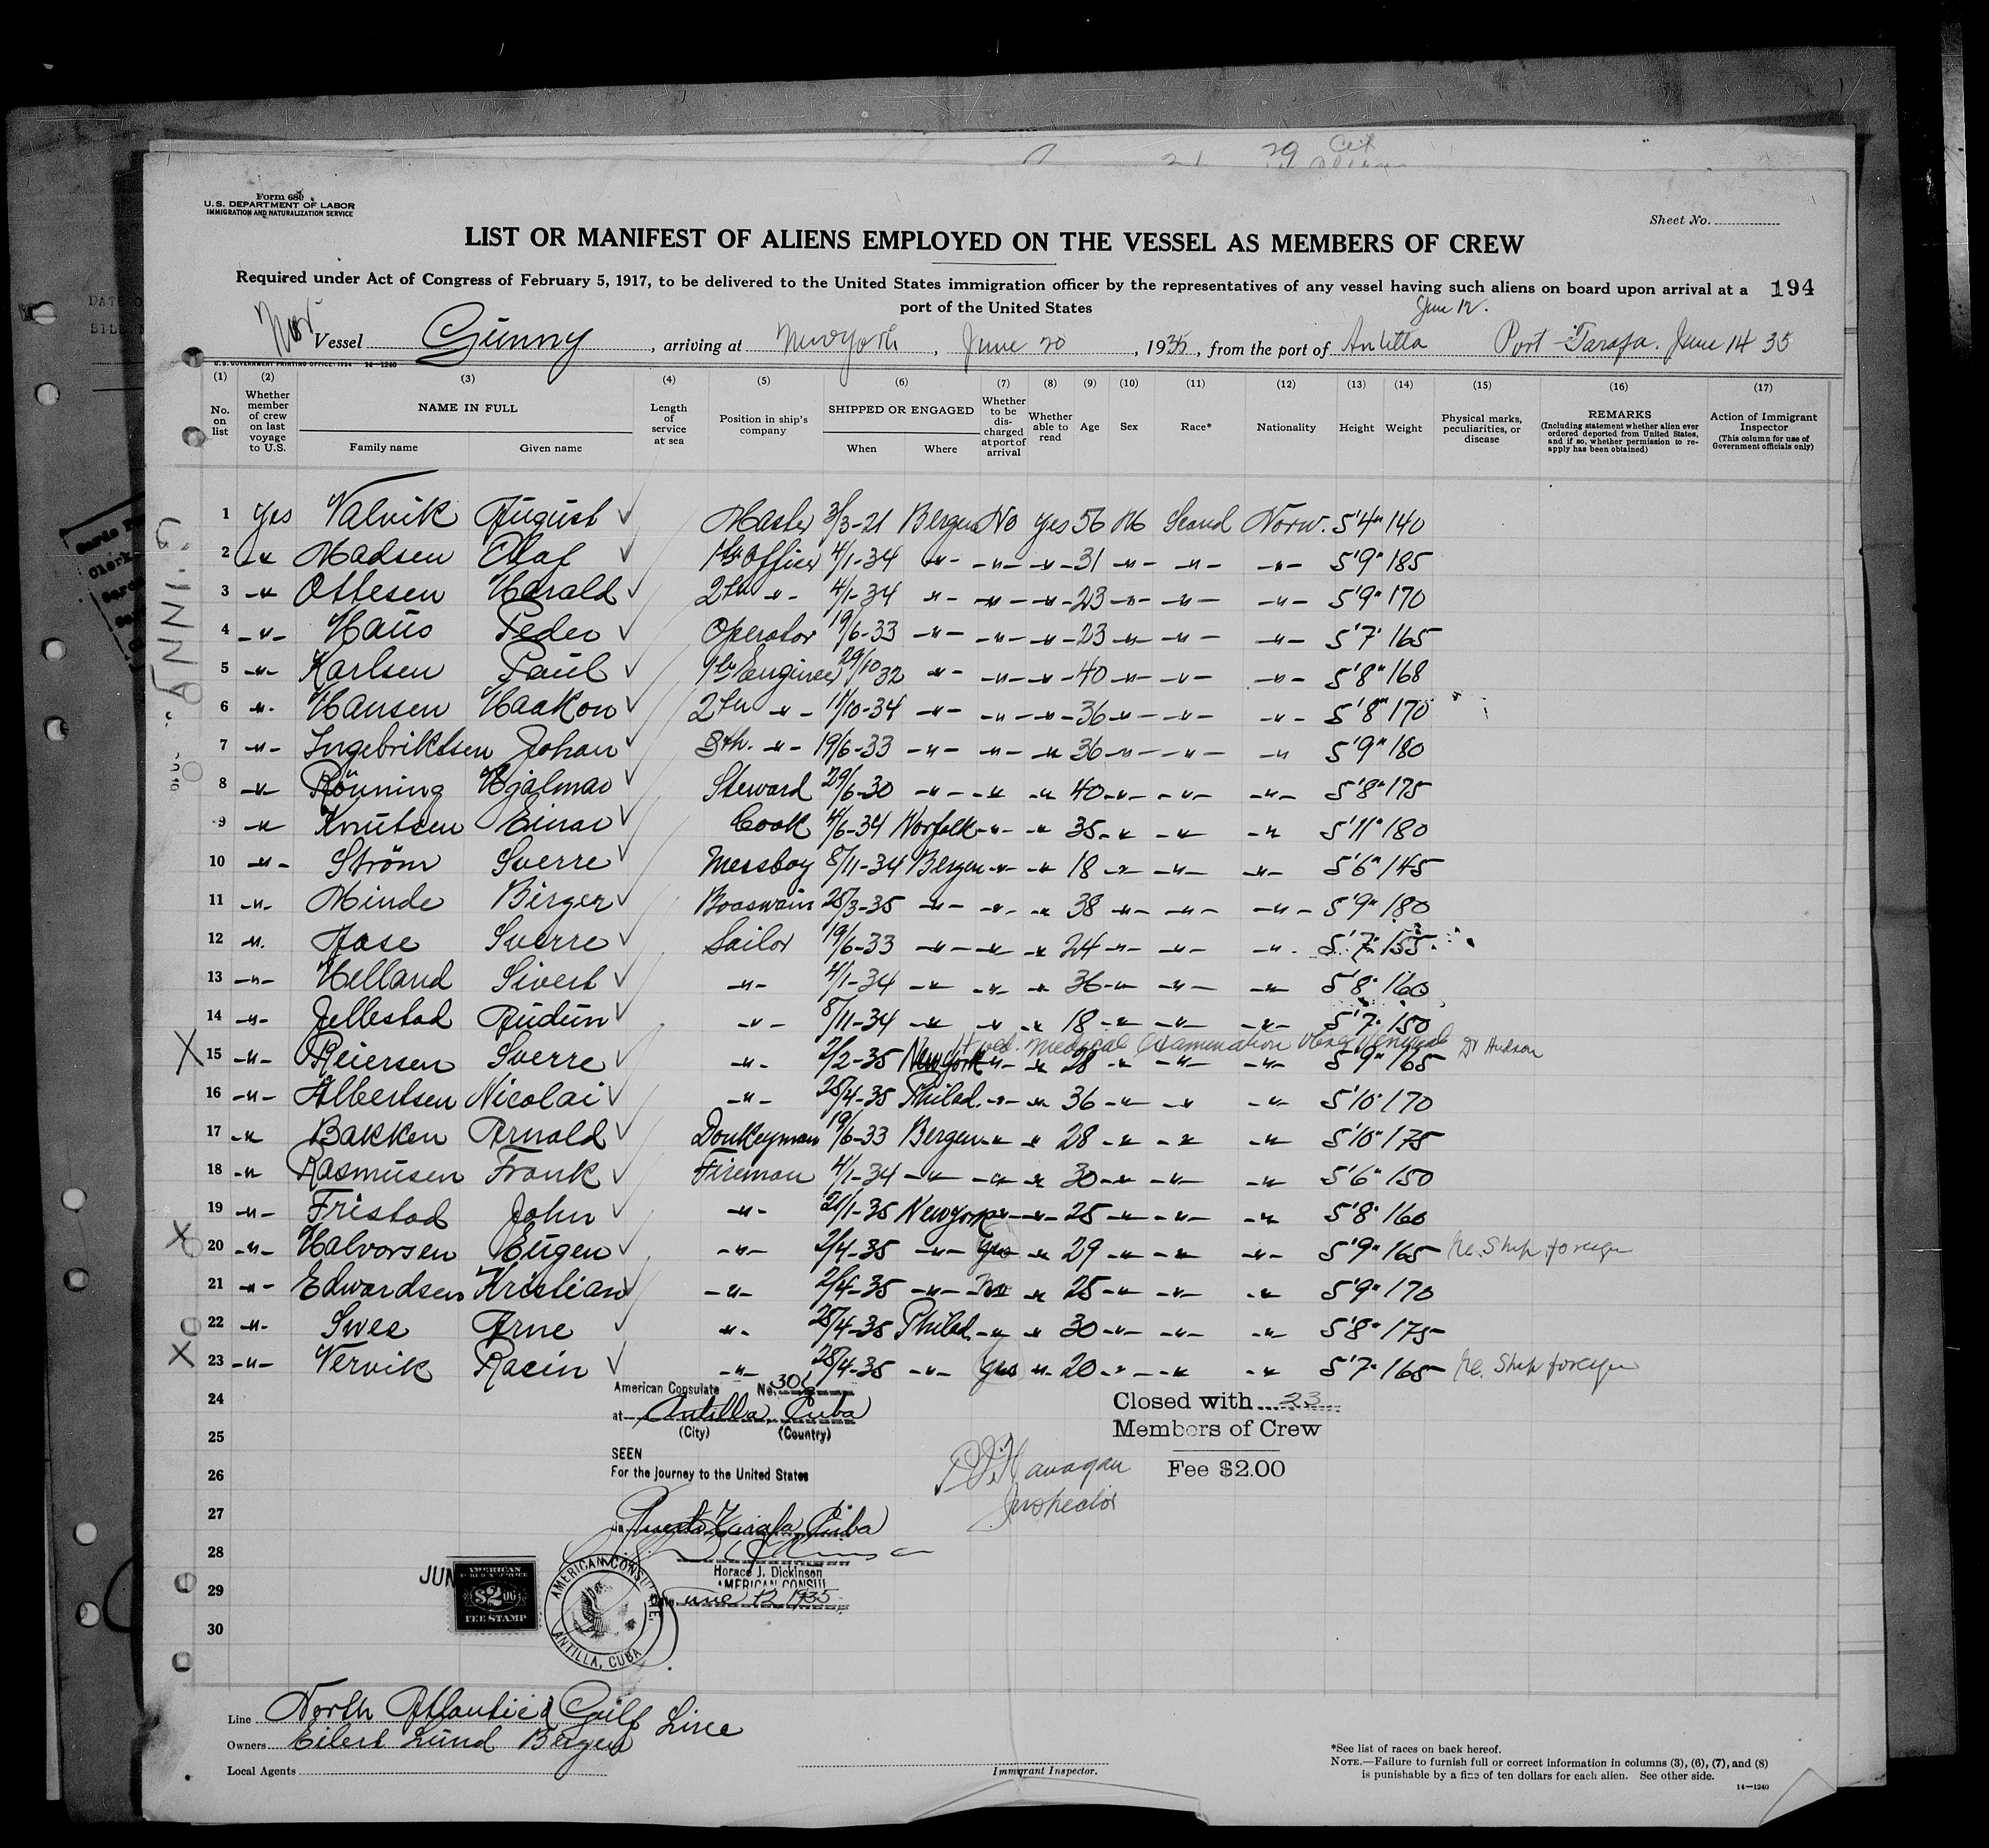 Form 680
U.S. DEPARTMENT OF LABOR
IMMIGRATION AND NATURALIZATION SERVICE
Sheet No.
LIST OR MANIFEST OF ALIENS EMPLOYED ON THE VESSEL AS MEMBERS OF CREW
Required under Act of Congress of February 5, 1917, to be delivered to the United States immigration officer by the representatives of any vessel having such aliens on board upon arrival at a 194
port of the United States
Nor Vessel Gunny, arriving at New York, June 20, 1935, from the port of Antilla June 12. Port Tarafa. June 14 35
U.S. GOVERNMENT PRINTING OFFICE: 1934 14—1240
(1) (2) (3) (4) (5) (6) (7) (8) (9) (10) (11) (12) (13) (14) (15) (16) (17)
No. on list
Whether member of crew on last voyage to U.S.
NAME IN FULL
Family name Given name
Length of service at sea
Position in ship's company
SHIPPED OR ENGAGED
When Where
Whether to be discharged at port of arrival
Whether able to read
Age
Sex
Race*
Nationality
Height
Weight
Physical marks, peculiarities, or disease
REMARKS
(Including statement whether alien ever ordered deported from United States, and if so, whether permission to reapply has been obtained)
Action of Immigrant Inspector
(This column for use of Government officials only)
1 Yes Valvik August Master 3/3-21 Bergen No yes 56 M Scand Norw. 5'4" 140
2 -"- Madsen Olaf 1st Officer 4/1-34 -"- -"- -"- 31 -"- -"- -"- 5'9" 185
3 -"- Ottesen Harald 2th -"- 4/1-34 -"- -"- -"- 23 -"- -"- -"- 5'9" 170
4 -"- Haus Peder Operator 19/6-33 -"- -"- -"- 23 -"- -"- -"- 5'7" 165
5 -"- Karlsen Paul 1st Engineer 29/10 32 -"- -"- -"- 40 -"- -"- -"- 5'8" 168
6 -"- Hansen Haakon 2th -"- 11/10-34 -"- -"- -"- 36 -"- -"- -"- 5'8" 170
7 -"- Ingebriktsen Johan 3th. -"- 19/6-33 -"- -"- -"- 36 -"- -"- -"- 5'9" 180
8 -"- Rönning Hjalmar Steward 29/6-30 -"- -"- -"- 40 -"- -"- -"- 5'8" 175
9 -"- Knutsen Einar Cook 4/6-34 Norfolk -"- -"- 35 -"- -"- -"- 5'11" 180
10 -"- Ström Sverre Messboy 8/11-34 Bergen -"- -"- 18 -"- -"- -"- 5'6" 145
11 -"- Minde Birger Boaswain 25/3-35 -"- -"- -"- 38 -"- -"- -"- 5'9" 180
12 -"- Aase Sverre Sailor 19/6-33 -"- -"- -"- 24 -"- -"- -"- 5'7" 155
13 -"- Helland Sivert -"- 4/1-34 -"- -"- -"- 36 -"- -"- -"- 5'8" 160
14 -"- Jellestad Audun -"- 8/11-34 -"- -"- -"- 18 -"- -"- -"- 5'7" 150
Held. Medical Examination Venereal Dr Hudson
X 15 -"- Reiersen Sverre -"- 2/2-35 New York -"- -"- 28 -"- -"- -"- 5'9" 165
16 -"- Albertsen Nicolai -"- 25/4-35 Philad. -"- -"- 36 -"- -"- -"- 5'10" 170
17 -"- Bakken Arnold Donkeyman 19/6-33 Bergen -"- -"- 28 -"- -"- -"- 5'10" 175
18 -"- Rasmusen Frank Fireman 4/1-34 -"- -"- -"- 30 -"- -"- -"- 5'6" 150
19 -"- Fristad John -"- 21/1-35 New York -"- -"- 25 -"- -"- -"- 5'8" 160
X 20 -"- Halvorsen Eugen -"- 2/4-35 -"- Yes -"- 29 -"- -"- -"- 5'9" 165 Re. Ship foreign
21 -"- Edwardsen Kristian -"- 2/4-35 -"- No -"- 25 -"- -"- -"- 5'9" 170
22 -"- Swee Arne -"- 25/4-35 Philad. -"- -"- 30 -"- -"- -"- 5'8" 175
X 23 -"- Vervik Racin -"- 25/4-35 -"- Yes -"- 20 -"- -"- -"- 5'7" 165 Re. Ship foreign
24
25
26
27
28
29
30
American Consulate No. 30
at Antilla, Cuba
(City) (Country)
SEEN
For the journey to the United States
Puerto Tarafa, Cuba
Horace J. Dickinson
AMERICAN CONSUL
Date June 12, 1935
Closed with 23
Members of Crew
Fee $2.00
Flanagan
Inspector
JUN
AMERICAN
$2.00
FEE STAMP
AMERICAN CONSULATE.
ANTILLA, CUBA
Line North Atlantic & Gulf Line
Owners Eilert Lund Bergen
Local Agents
Immigrant Inspector.
*See list of races on back hereof.
NOTE.—Failure to furnish full or correct information in columns (3), (6), (7), and (8)
is punishable by a fine of ten dollars for each alien. See other side.
14—1240